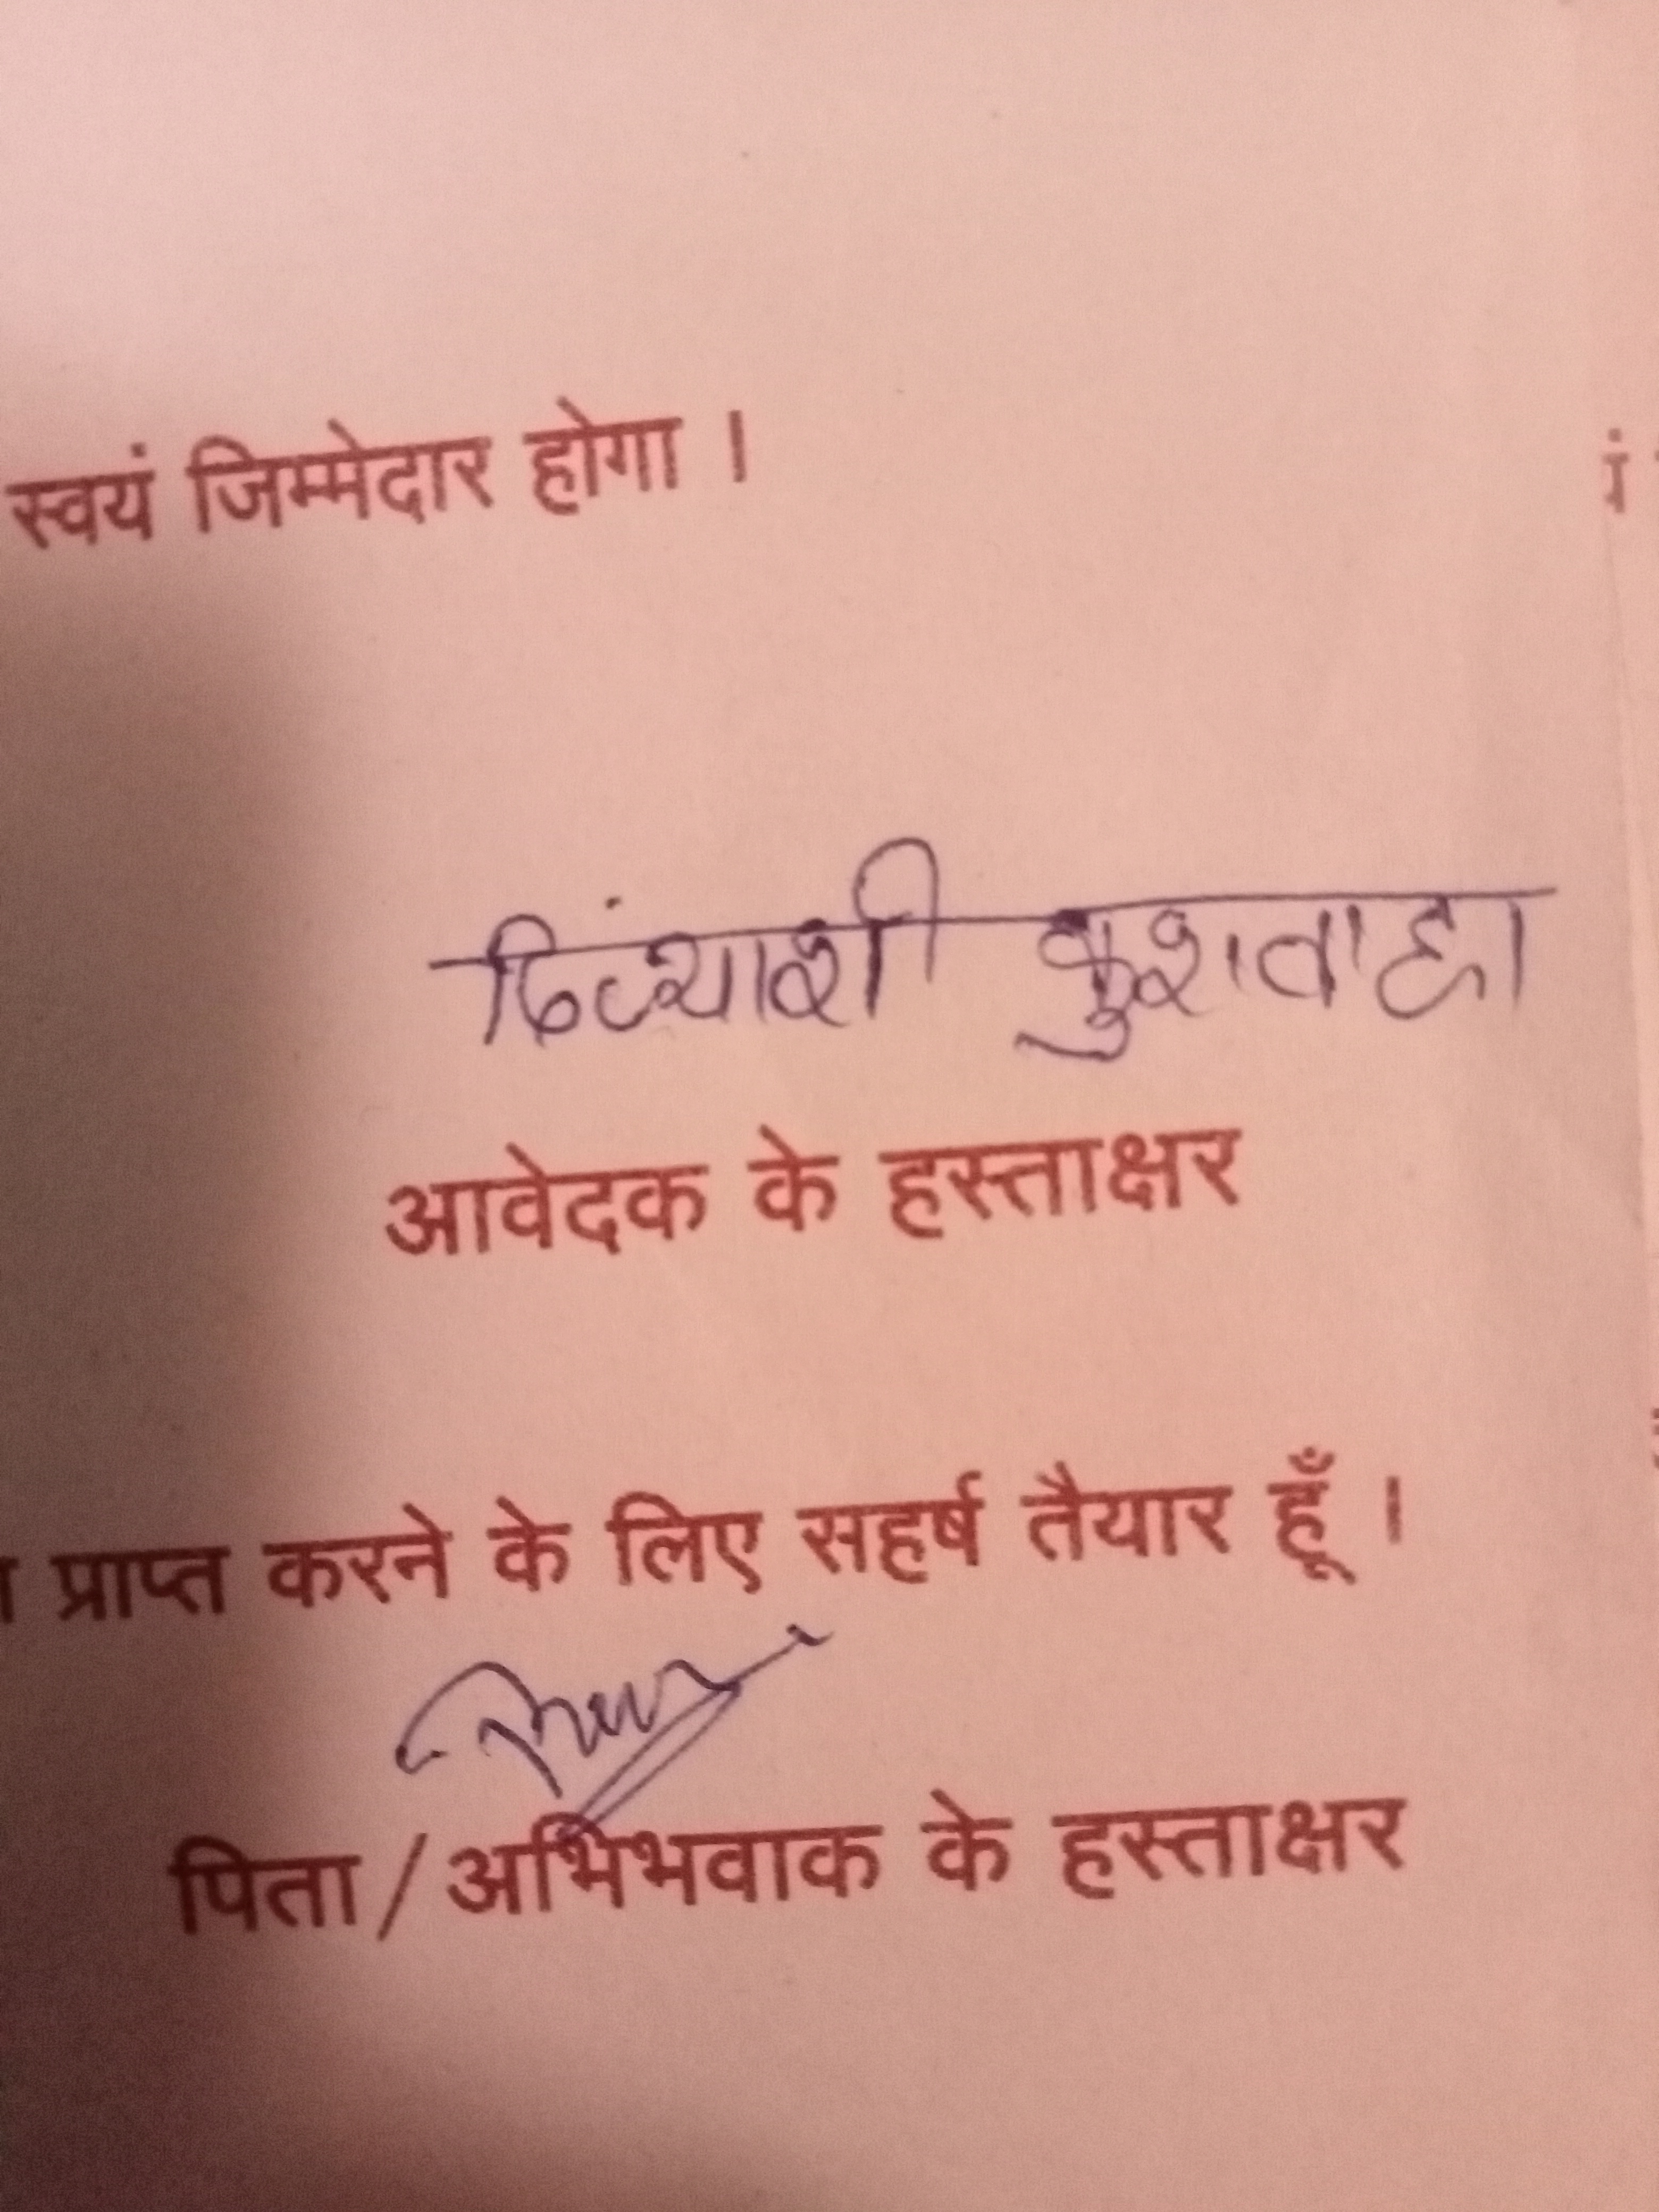 स्वयं जिम्मेदार होगा ।
दिव्यांशी कुशवाहा
आवेदक के हस्ताक्षर
प्राप्त करने के लिए सहर्ष तैयार हूँ ।
पिता/अभिभवाक के हस्ताक्षर